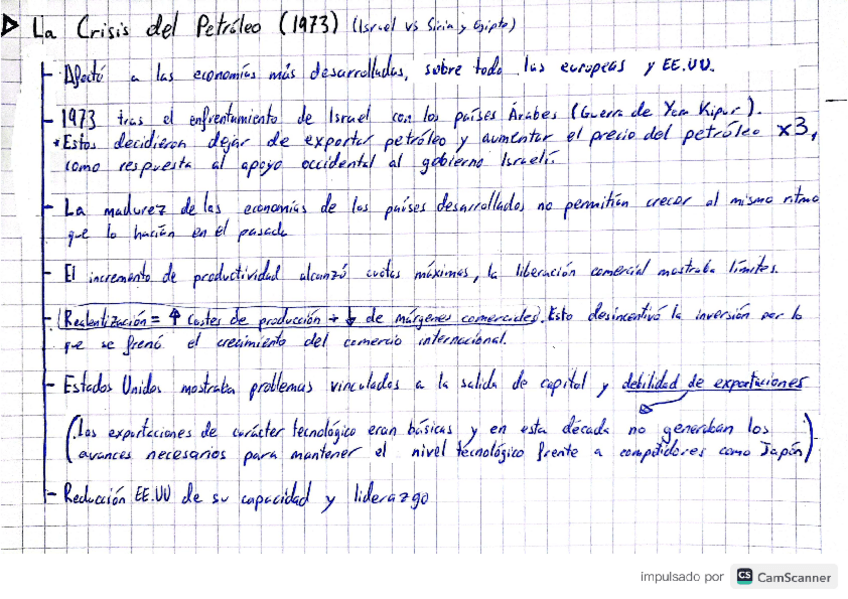 La Crisis del Petróleo (1973) (Israel vs Siria y Egipto)
- Afectó a las economías más desarrolladas, sobre todo las europeas y EE.UU.
- 1973 tras el enfrentamiento de Israel con los países Árabes (Guerra de Yom Kipur).
*Estos decidieron dejar de exportar petróleo y aumentar el precio del petróleo x3,
como respuesta al apoyo occidental al gobierno Israelí.
- La madurez de las economías de los países desarrollados no permitían crecer al mismo ritmo
que lo hacían en el pasado
- El incremento de productividad alcanzó cuotas máximas, la liberación comercial mostraba límites.
- (Realentización = ↑ Costes de producción + ↓ de márgenes comerciales). Esto desincentivó la inversión por lo
que se frenó el crecimiento del comercio internacional.
- Estados Unidos mostraba problemas vinculados a la salida de capital y debilidad de exportaciones
(Las exportaciones de carácter tecnológico eran básicas y en esta década no generaban los
avances necesarios para mantener el nivel tecnológico frente a competidores como Japón)
- Reducción EE.UU de su capacidad y liderazgo
impulsado por CS CamScanner